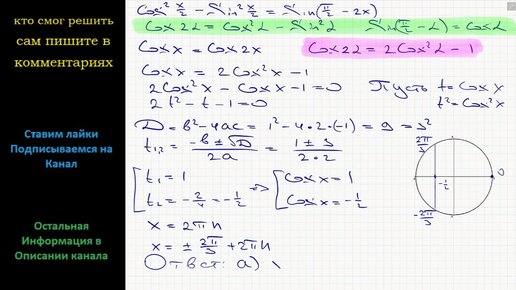 кто смог решить
сам пишите в
комментариях
Ставим лайки
Подписываемся на
Канал
Остальная
Информация в
Описании канала
Cos² x/2 - Sin² x/2 = Sin(π/2 - 2x)
Cos2α = Cos²α - Sin²α Sin(π/2 - α) = Cosα
Cosx = Cos2x Cos2α = 2Cos²α - 1
Cosx = 2Cos²x - 1
2Cos²x - Cosx - 1 = 0 Пусть t = Cosx
2t² - t - 1 = 0 t² = Cos²x
D = b² - 4ac = 1² - 4·2·(-1) = 9 = 3²
t₁,₂ = (-b ± √D)/2a = (1 ± 3)/(2·2)
t₁ = 1 => Cosx = 1
t₂ = -2/4 = -1/2 Cosx = -1/2
x = 2πn
x = ± 2π/3 + 2πn
Ответ: а)
2π/3
-1/2
0
-2π/3